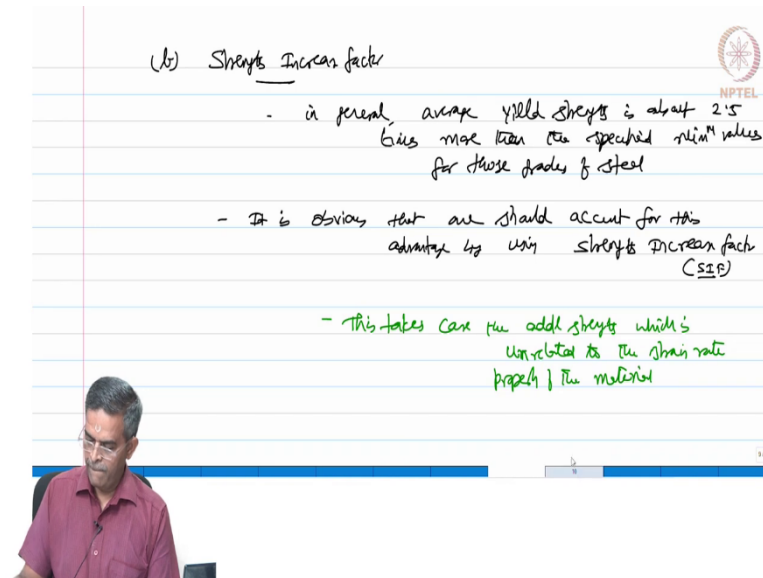 NPTEL
(b) Strength Increase factor
- in general, average yield strength is about 2.5
times more than the specified minm values
for those grades of steel
- It is obvious that one should account for this
advantage by using Strength Increase factor
(SIF)
- This takes care the addl strength which is
unrelated to the strain rate
property of the material